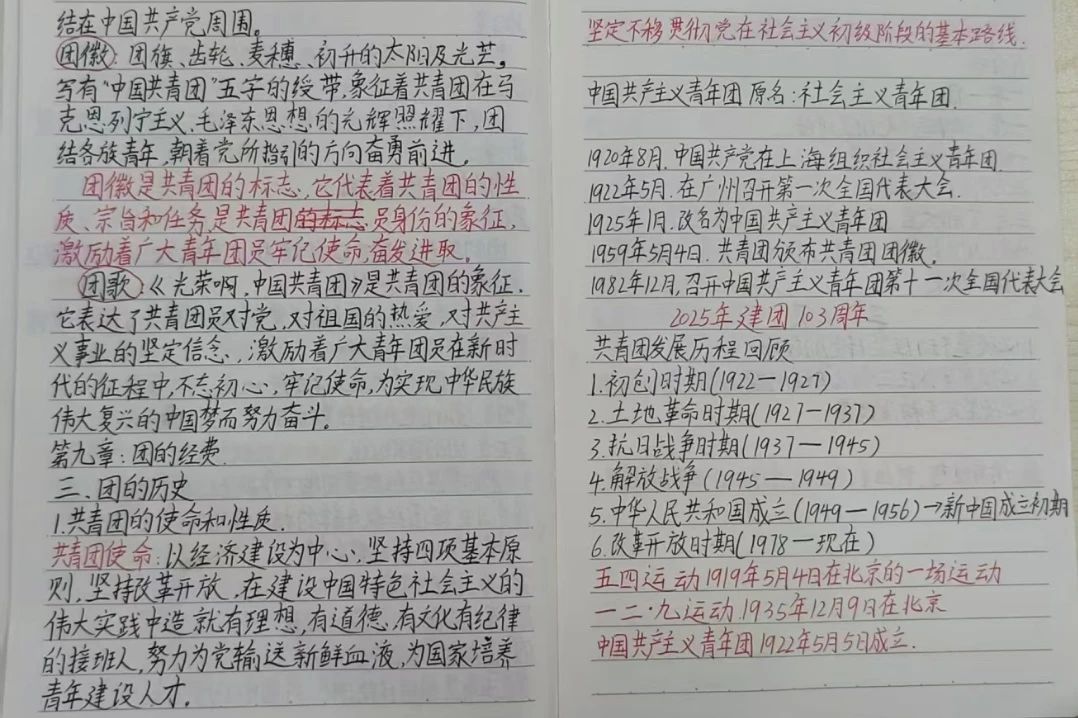 结在中国共产党周围。
团徽：团旗、齿轮、麦穗、初升的太阳及光芒。
写有“中国共青团”五字的绶带,象征着共青团在马
克思列宁主义、毛泽东思想的光辉照耀下,团
结各族青年,朝着党所指引的方向奋勇前进。
团徽是共青团的标志,它代表着共青团的性
质、宗旨和任务,是共青团的标志员身份的象征,
激励着广大青年团员牢记使命,奋发进取。
团歌：《光荣啊,中国共青团》是共青团的象征.
它表达了共青团员对党,对祖国的热爱,对共产主
义事业的坚定信念,激励着广大青年团员在新时
代的征程中,不忘初心,牢记使命,为实现中华民族
伟大复兴的中国梦而努力奋斗。
第九章：团的经费.
三、团的历史
1.共青团的使命和性质.
共青团使命：以经济建设为中心,坚持四项基本原
则,坚持改革开放,在建设中国特色社会主义的
伟大实践中造就有理想,有道德,有文化有纪律
的接班人,努力为党输送新鲜血液,为国家培养
青年建设人才。
坚定不移贯彻党在社会主义初级阶段的基本路线.
中国共产主义青年团原名：社会主义青年团.
1920年8月.中国共产党在上海组织社会主义青年团
1922年5月.在广州召开第一次全国代表大会.
1925年1月.改名为中国共产主义青年团
1959年5月4日.共青团颁布共青团团徽。
1982年12月,召开中国共产主义青年团第十一次全国代表大会
2025年建团103周年
共青团发展历程回顾
1.初创时期(1922—1927)
2.土地革命时期(1927—1937)
3.抗日战争时期(1937—1945)
4.解放战争(1945—1949)
5.中华人民共和国成立(1949—1956)→新中国成立初期
6.改革开放时期(1978—现在)
五四运动1919年5月4日在北京的一场运动
一二·九运动.1935年12月9日在北京
中国共产主义青年团1922年5月5日成立.